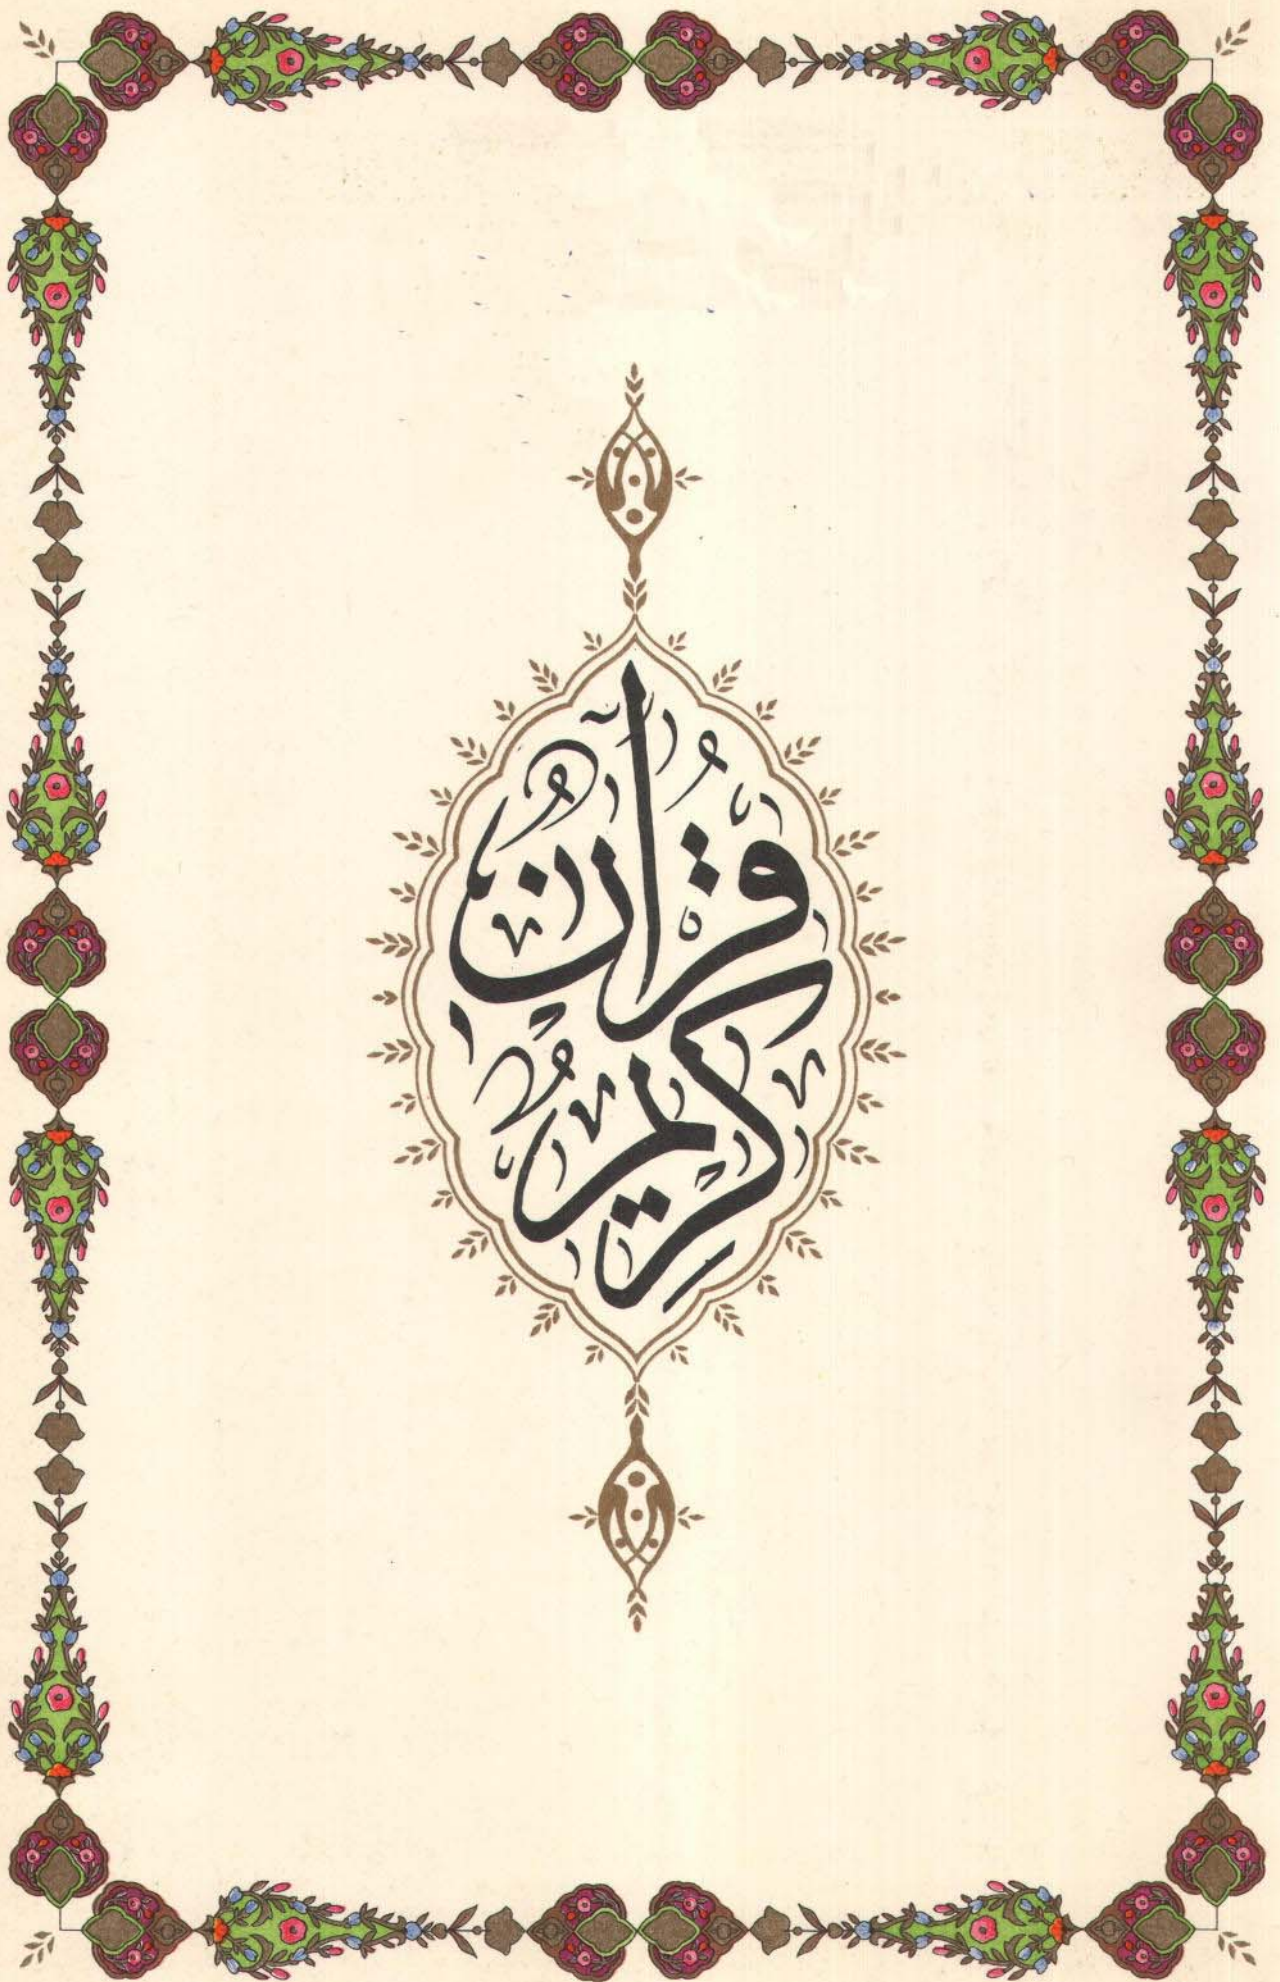 قُرْآنٌ
كَرِيمٌ